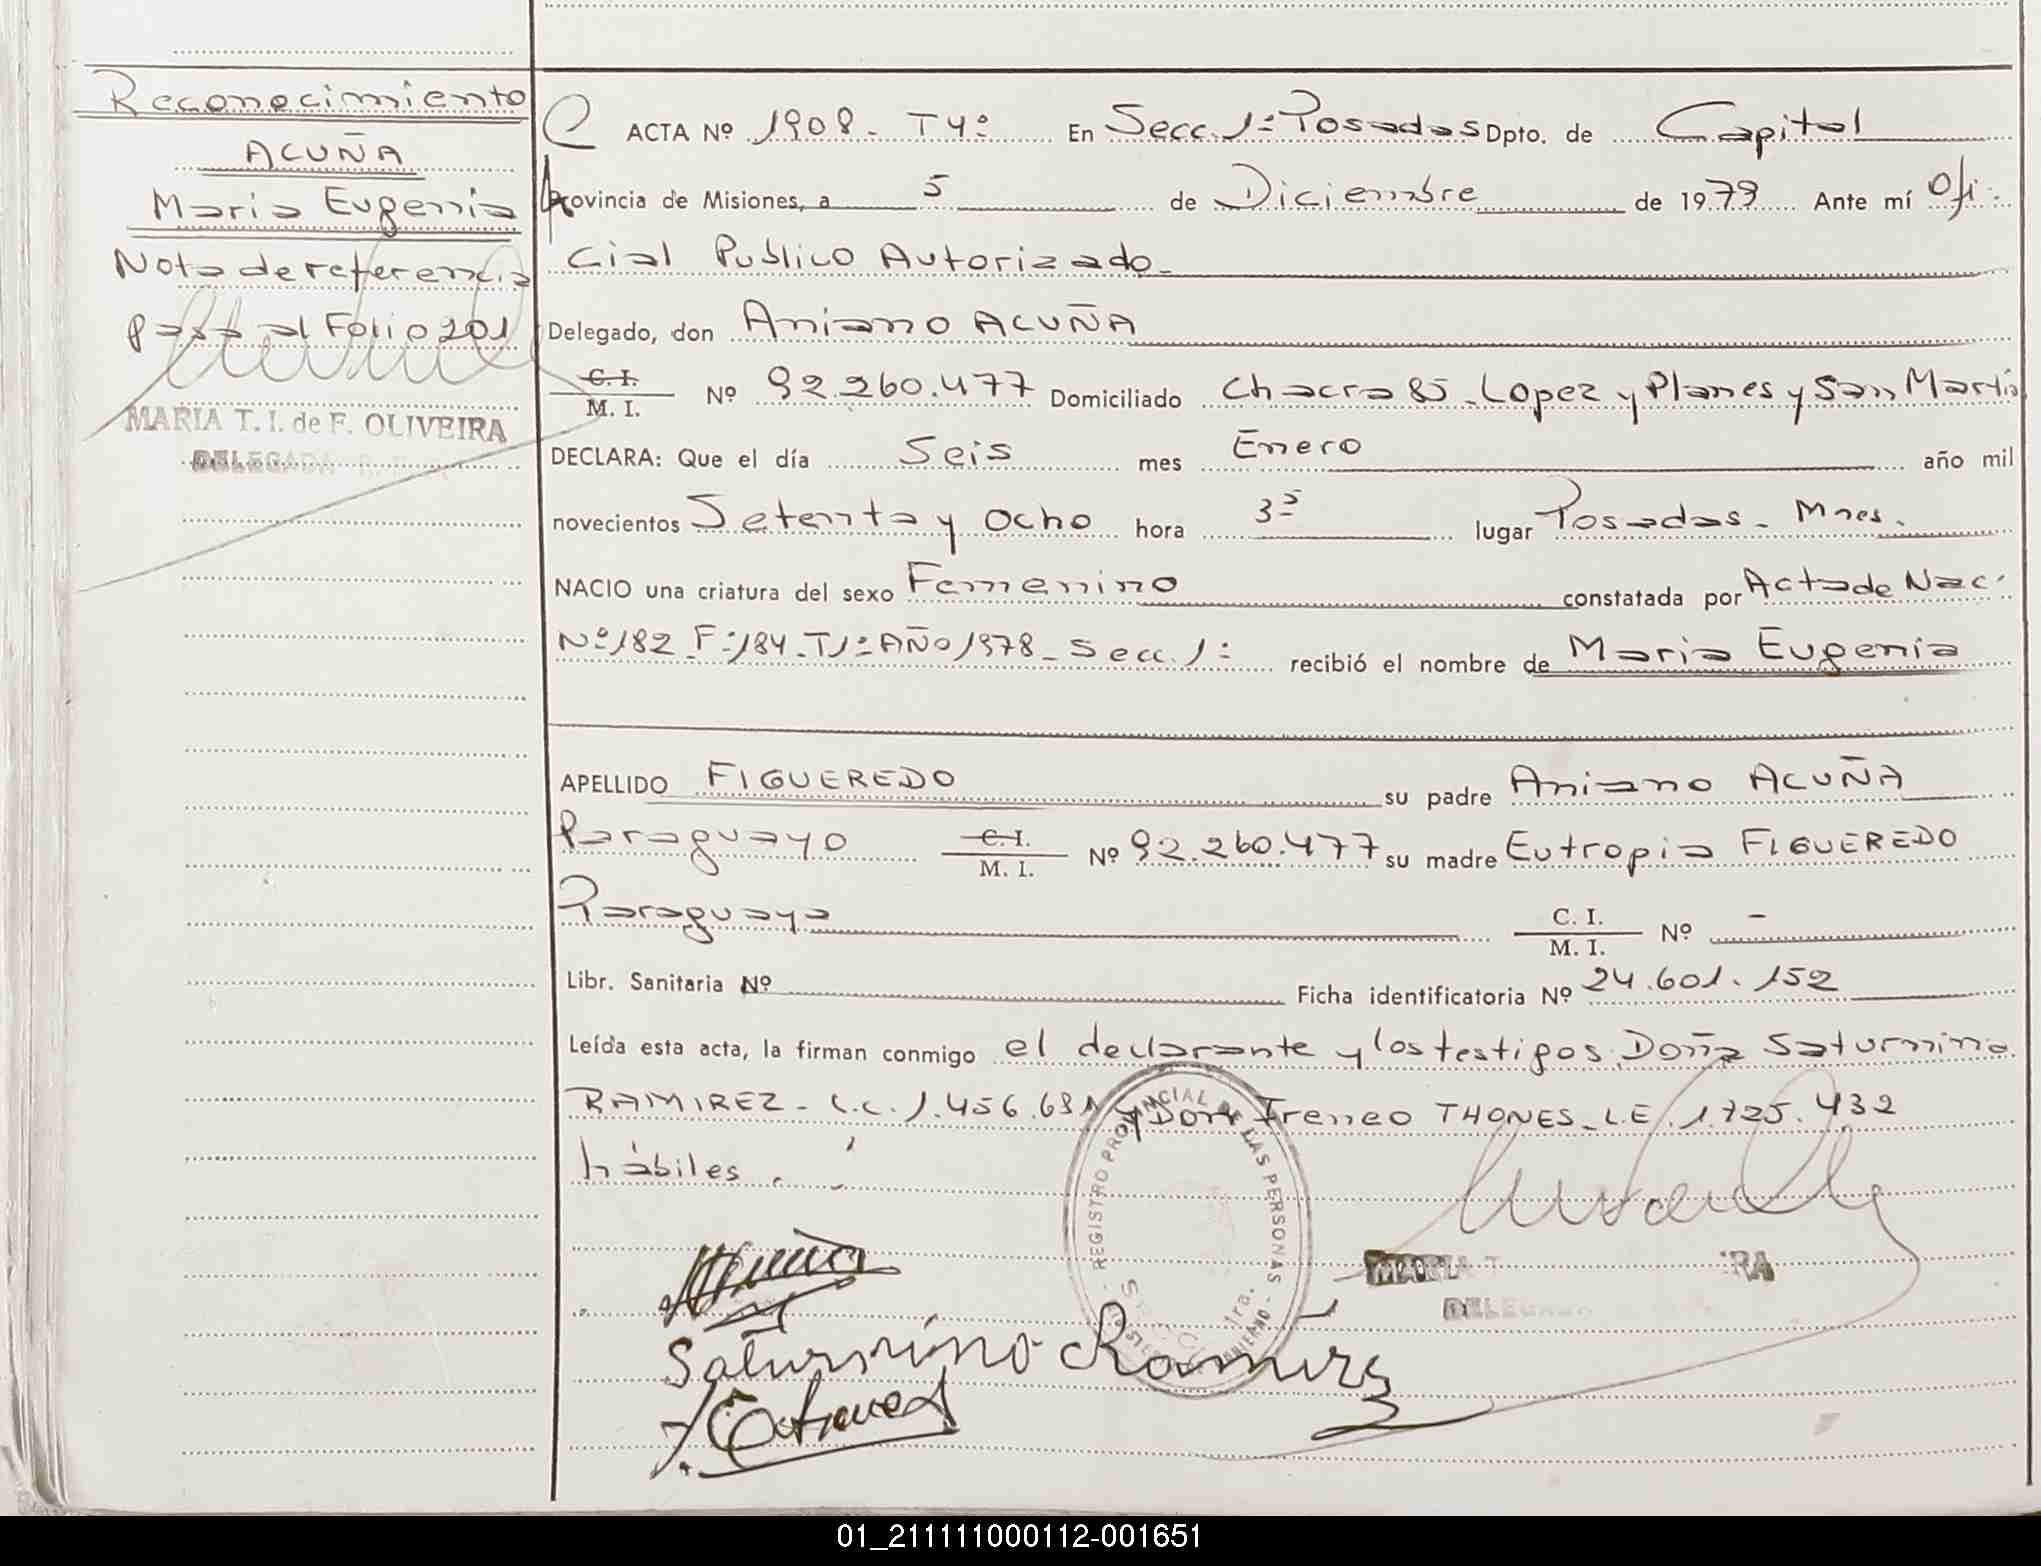 Reconocimiento
ACUÑA
Maria Eugenia
Nota de referencia
pasa al Folio 201
MARIA T. I. de F. OLIVEIRA
DELEGADA
ACTA Nº 1908 - T4º En Secc. 1ª Posadas Dpto. de Capital
Provincia de Misiones, a 5 de Diciembre de 1979 Ante mí Ofi-
cial Publico Autorizado -
Delegado, don Aniano ACUÑA
C. I. / M. I. Nº 92.260.477 Domiciliado Chacra 85 - Lopez y Planes y San Martin
DECLARA: Que el día Seis mes Enero año mil
novecientos Setenta y Ocho hora 3 5 lugar Posadas - Mnes.
NACIO una criatura del sexo Femenino constatada por Acta de Nac.
Nº 182 - Fº 184 - T1º AÑO 1978 - Secc. 1ª recibió el nombre de Maria Eugenia
APELLIDO FIGUEREDO su padre Aniano ACUÑA
Paraguayo C. I. / M. I. Nº 92.260.477 su madre Eutropia FIGUEREDO
Paraguaya C. I. / M. I. Nº -
Libr. Sanitaria Nº Ficha identificatoria Nº 24.601.152
Leída esta acta, la firman conmigo el declarante y los testigos Doña Saturnina
RAMIREZ - L.C. 1.456.691 y Don Ireneo THONES - L.E. 1.725.432
hábiles.
REGISTRO PROVINCIAL DE LAS PERSONAS
1ra.
MARIA T RA
DELEGADA
Saturnino Ramirez
01_211111000112-001651